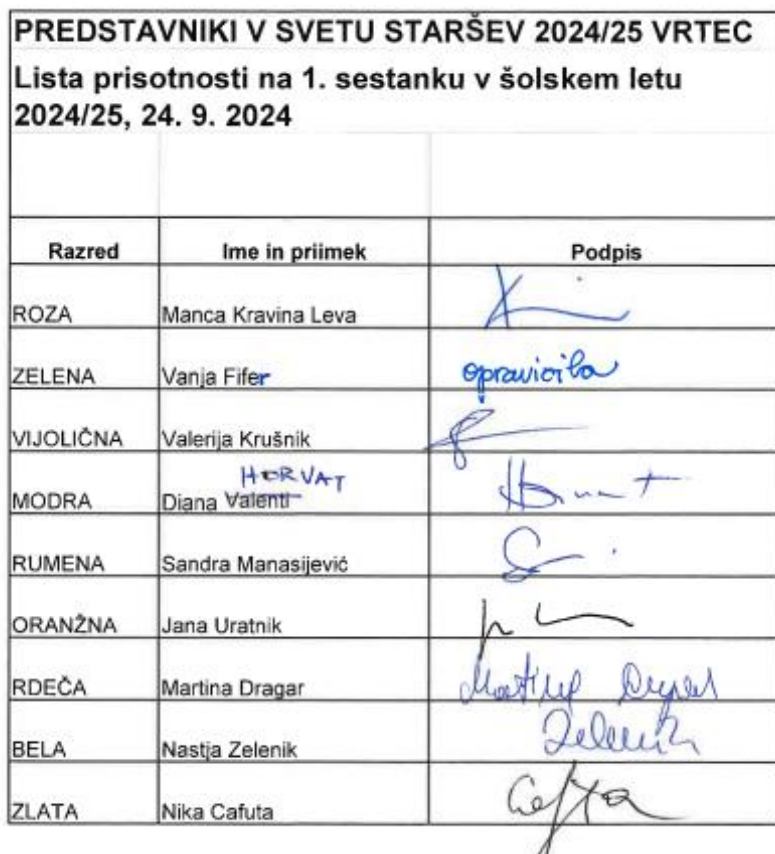 PREDSTAVNIKI V SVETU STARŠEV 2024/25 VRTEC
Lista prisotnosti na 1. sestanku v šolskem letu
2024/25, 24. 9. 2024
Razred Ime in priimek Podpis
ROZA Manca Kravina Leva
ZELENA Vanja Fifer opravičila
VIJOLIČNA Valerija Krušnik
HORVAT
MODRA Diana Valenti
RUMENA Sandra Manasijević
ORANŽNA Jana Uratnik
RDEČA Martina Dragar
BELA Nastja Zelenik Zelenik
ZLATA Nika Cafuta